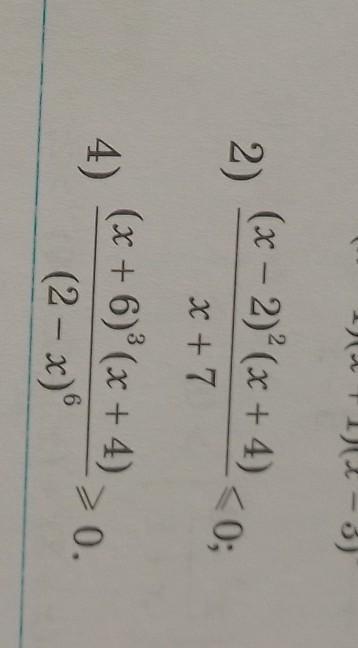 2) (x − 2)²(x + 4) / (x + 7) ⩽ 0;
4) (x + 6)³(x + 4) / (2 − x)⁶ ⩾ 0.